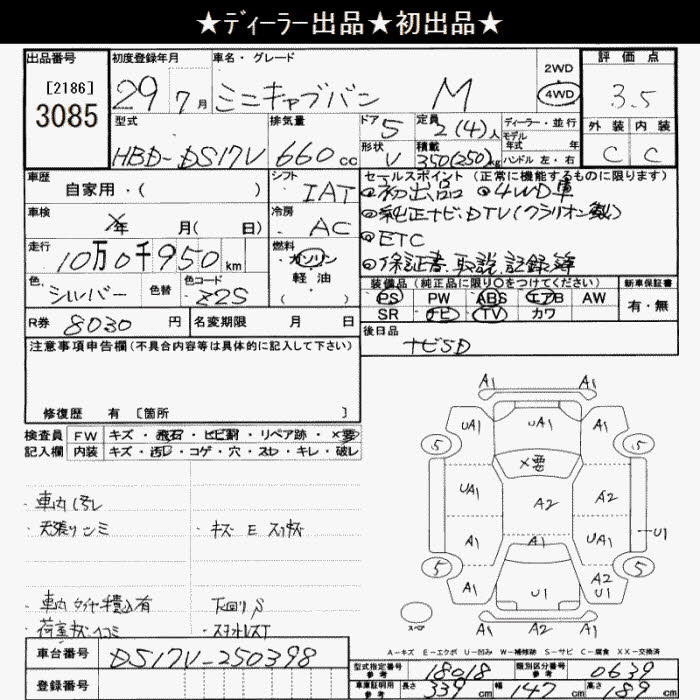 ★ディーラー出品★初出品★
出品番号
[2186]
3085
初度登録年月
29 7 月
車名・グレード
ミニキャブバン M
2WD
4WD
評価点
3.5
型式
HBD-DS17V
排気量
660 cc
ドア 5
形状 V
定員 2(4)人
積載 350(250)kg
ディーラー・並行
モデル年式 年
ハンドル 左・右
外装 内装
C C
車歴
自家用・( )
シフト
IAT
セールスポイント (正常に機能するものに限ります)
◎初出品 ◎4WD車
◎純正ナビ、DTV(クラリオン製)
◎ETC
◎保証書、取説、記録簿
車検
年 月( 日)
冷房
AC
走行
10万0千950 km
燃料
ガソリン
軽油
( )
色
シルバー
色替
色コード
Z2S
装備品 (純正品に限り○をつけてください)
PS PW ABS エアB AW
SR ナビ TV カワ
新車保証書
有・無
R券 8030 円
名変期限 月 日
後日品
ナビSD
注意事項申告欄(不具合内容等は具体的に記入して下さい)
修復歴 有 [箇所 ]
検査員記入欄
FW キズ・飛石・ヒビ割・リペア跡・×要
内装 キズ・汚レ・コゲ・穴・スレ・キレ・破レ
・車内汚れ
・天張りシミ ・キズ E スリキズ
・車内タイヤ積込有 下回りS
・荷室キズヘコミ ・スタッドレスT
A1 A1
UA1 UA1 A1
5 5
×要
UA1 A2 A2
A1 A1 A1 U1
5 5
A1 U1 A2
U1
A1 A2
スペア
A-キズ E-エクボ U-凹み W-補修跡 S-サビ C-腐食 XX-交換済
車台番号 DS17V-250398
登録番号
型式指定番号 参考 18018
類別区分番号 参考 0639
車庫証明用 参考 長さ 339 cm 幅 147 cm 高さ 189 cm